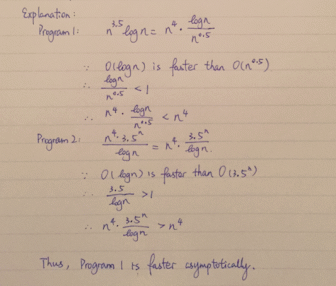 Explanation:
Program 1: n^3.5 log n = n^4 · log n / n^0.5
∵ O(log n) is faster than O(n^0.5)
∴ log n / n^0.5 < 1
∴ n^4 · log n / n^0.5 < n^4
Program 2: n^4 · 3.5^n / log n = n^4 · 3.5^n / log n
∵ O(log n) is faster than O(3.5^n)
∴ 3.5 / log n > 1
∴ n^4 · 3.5^n / log n > n^4
Thus, Program 1 is faster asymptotically.